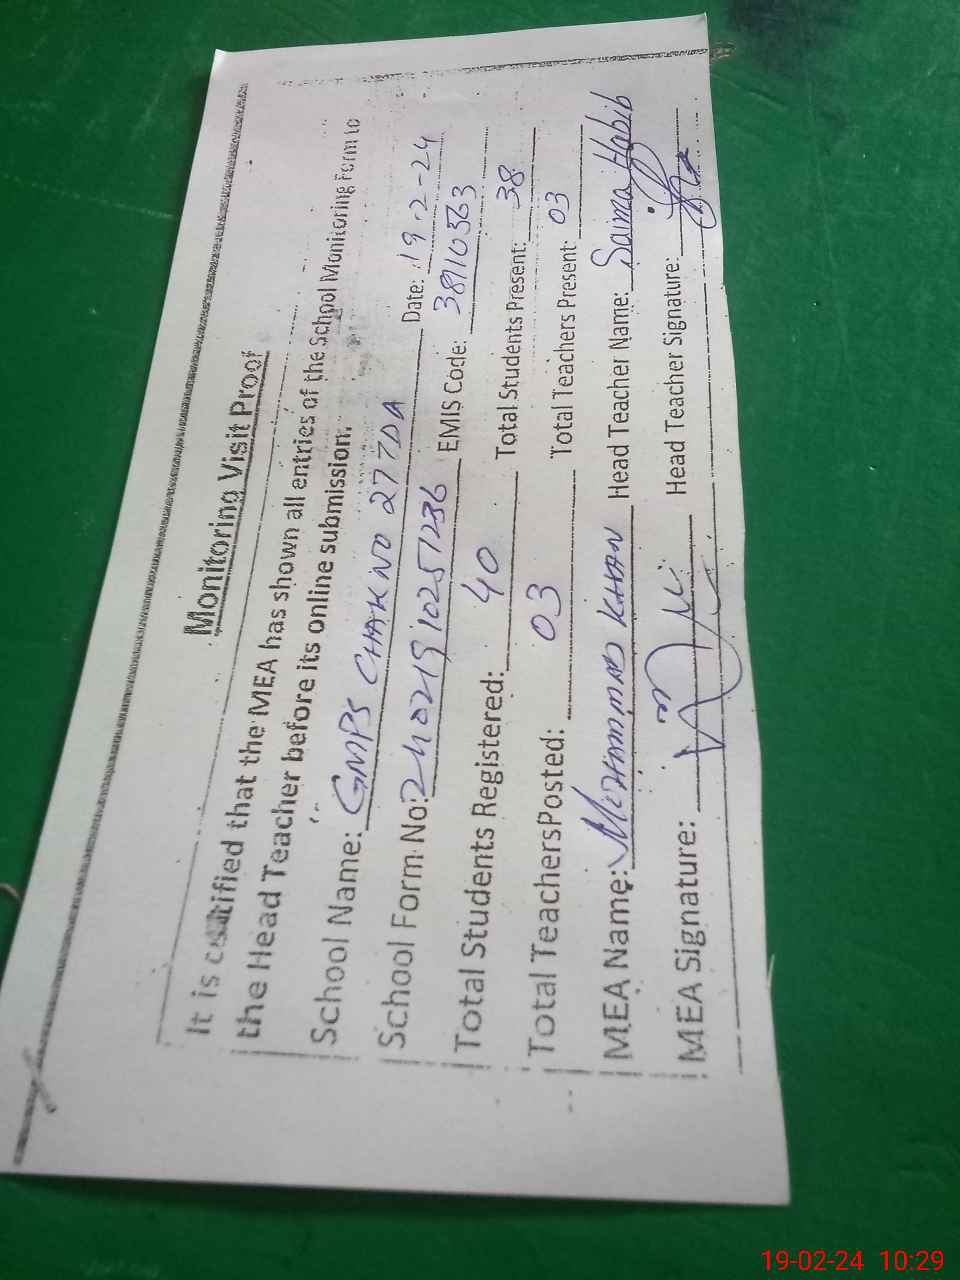 Monitoring Visit Proof
It is certified that the MEA has shown all entries of the School Monitoring Form to
the Head Teacher before its online submission.
School Name: GMPS CHAK NO 27 TDA Date: 19-2-24
School Form No: 240219102551236 EMIS Code: 38110363
Total Students Registered: 40 Total Students Present: 38
Total TeachersPosted: 03 Total Teachers Present: 03
MEA Name: MOHAMMAD KHAN Head Teacher Name: Saima Habib
MEA Signature: Head Teacher Signature:
19-02-24 10:29